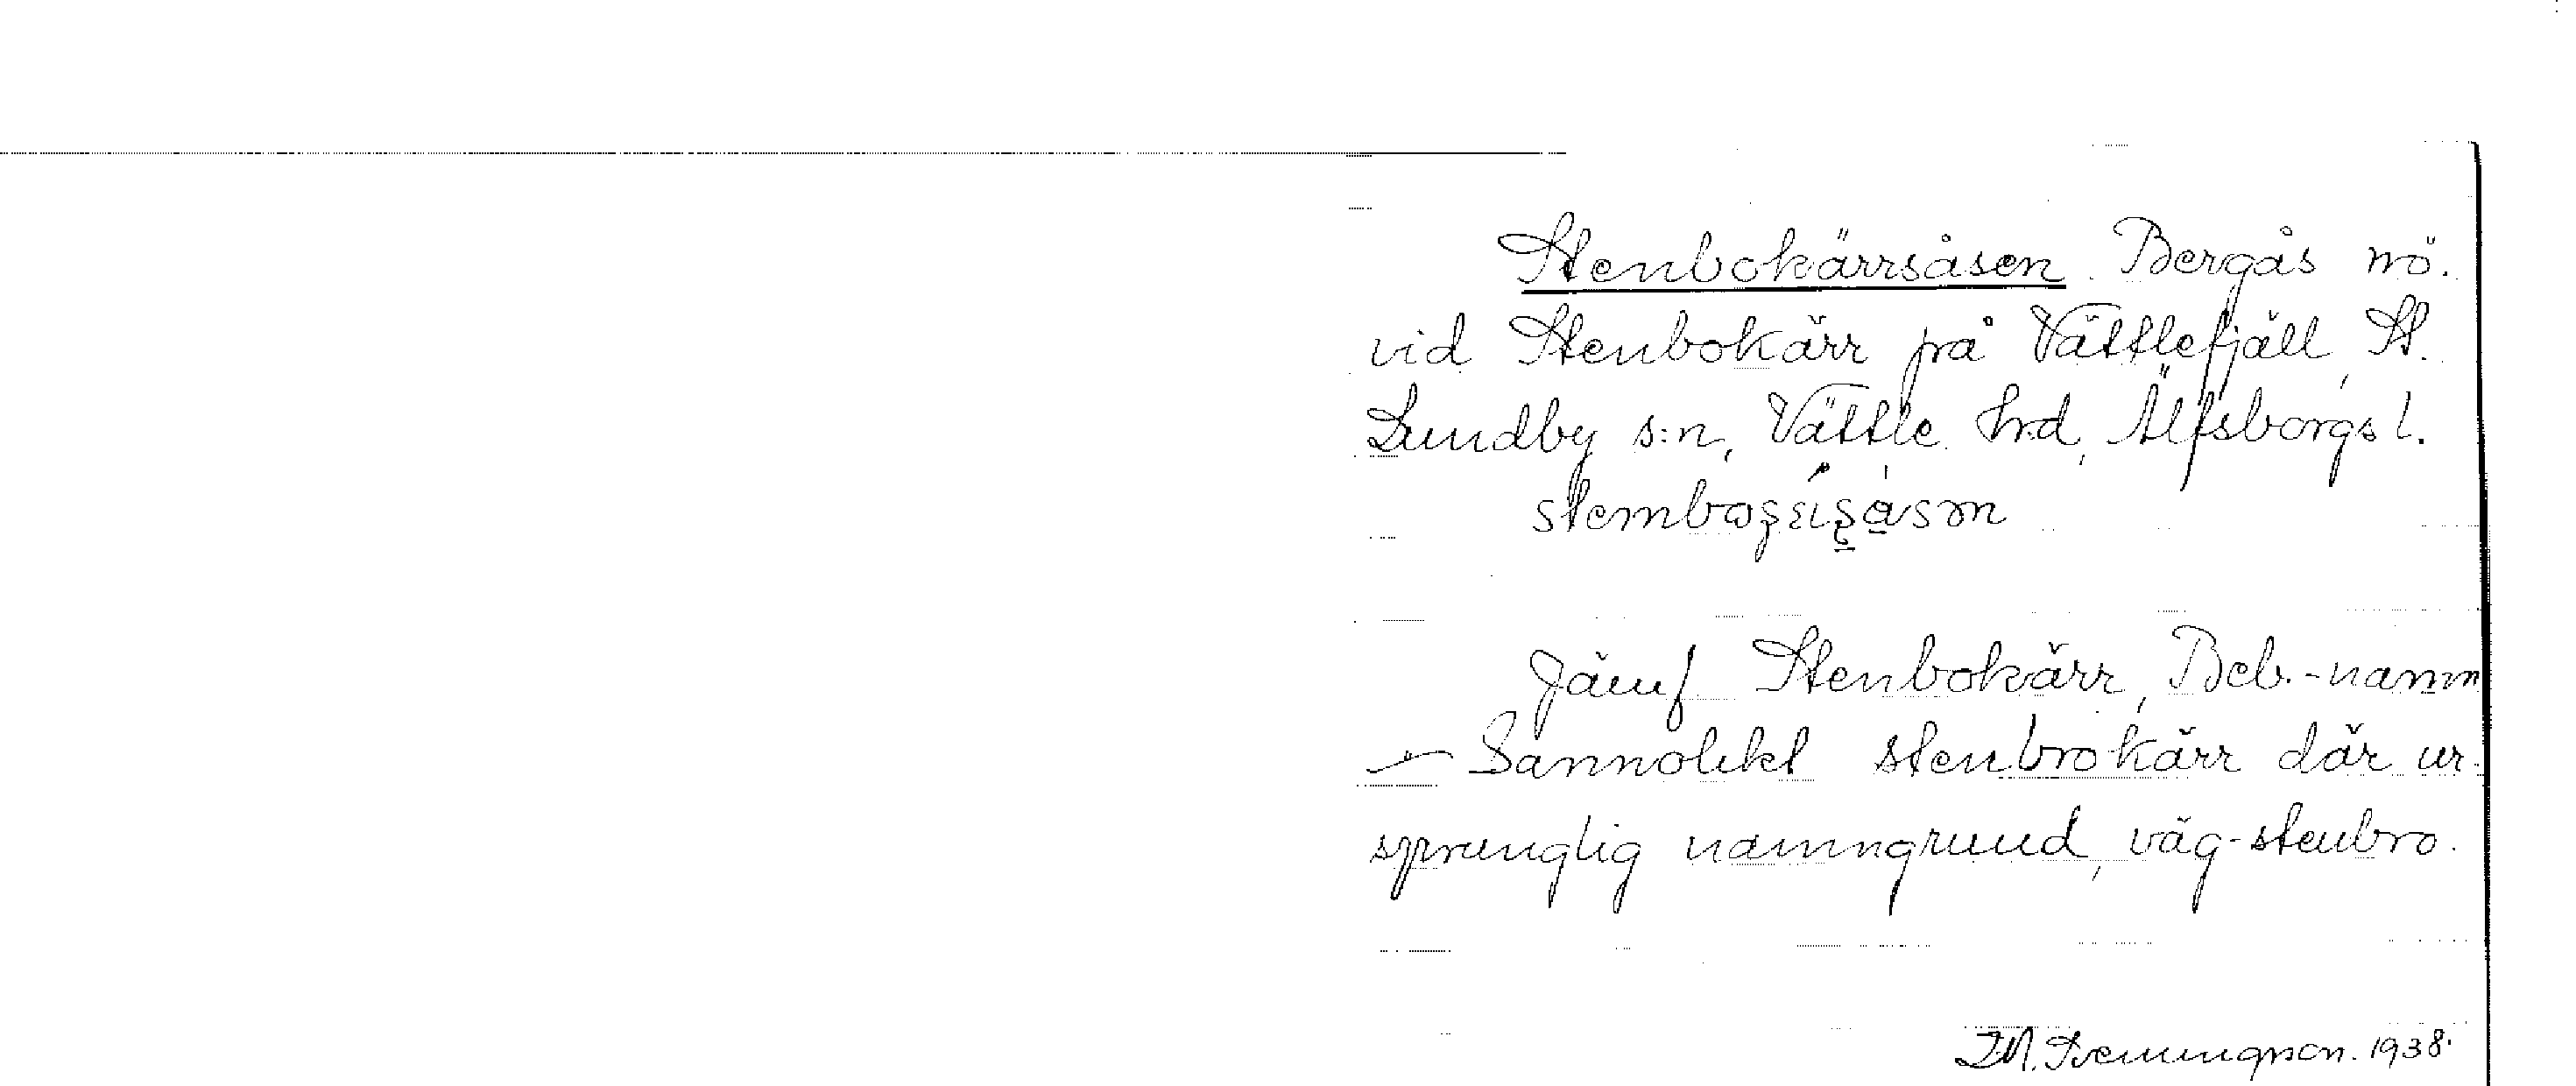 Stenbokärrsåsen. Bergås nö.
vid Stenbokärr på Vättlefjäll, St.
Lundby s:n, Vättle hrd, Älfsborgs l.
Jämf Stenbokärr, Beb.-namn
Sannolikt stenbrokärr där ur-
sprunglig namngrund, väg-stenbro.
1938.